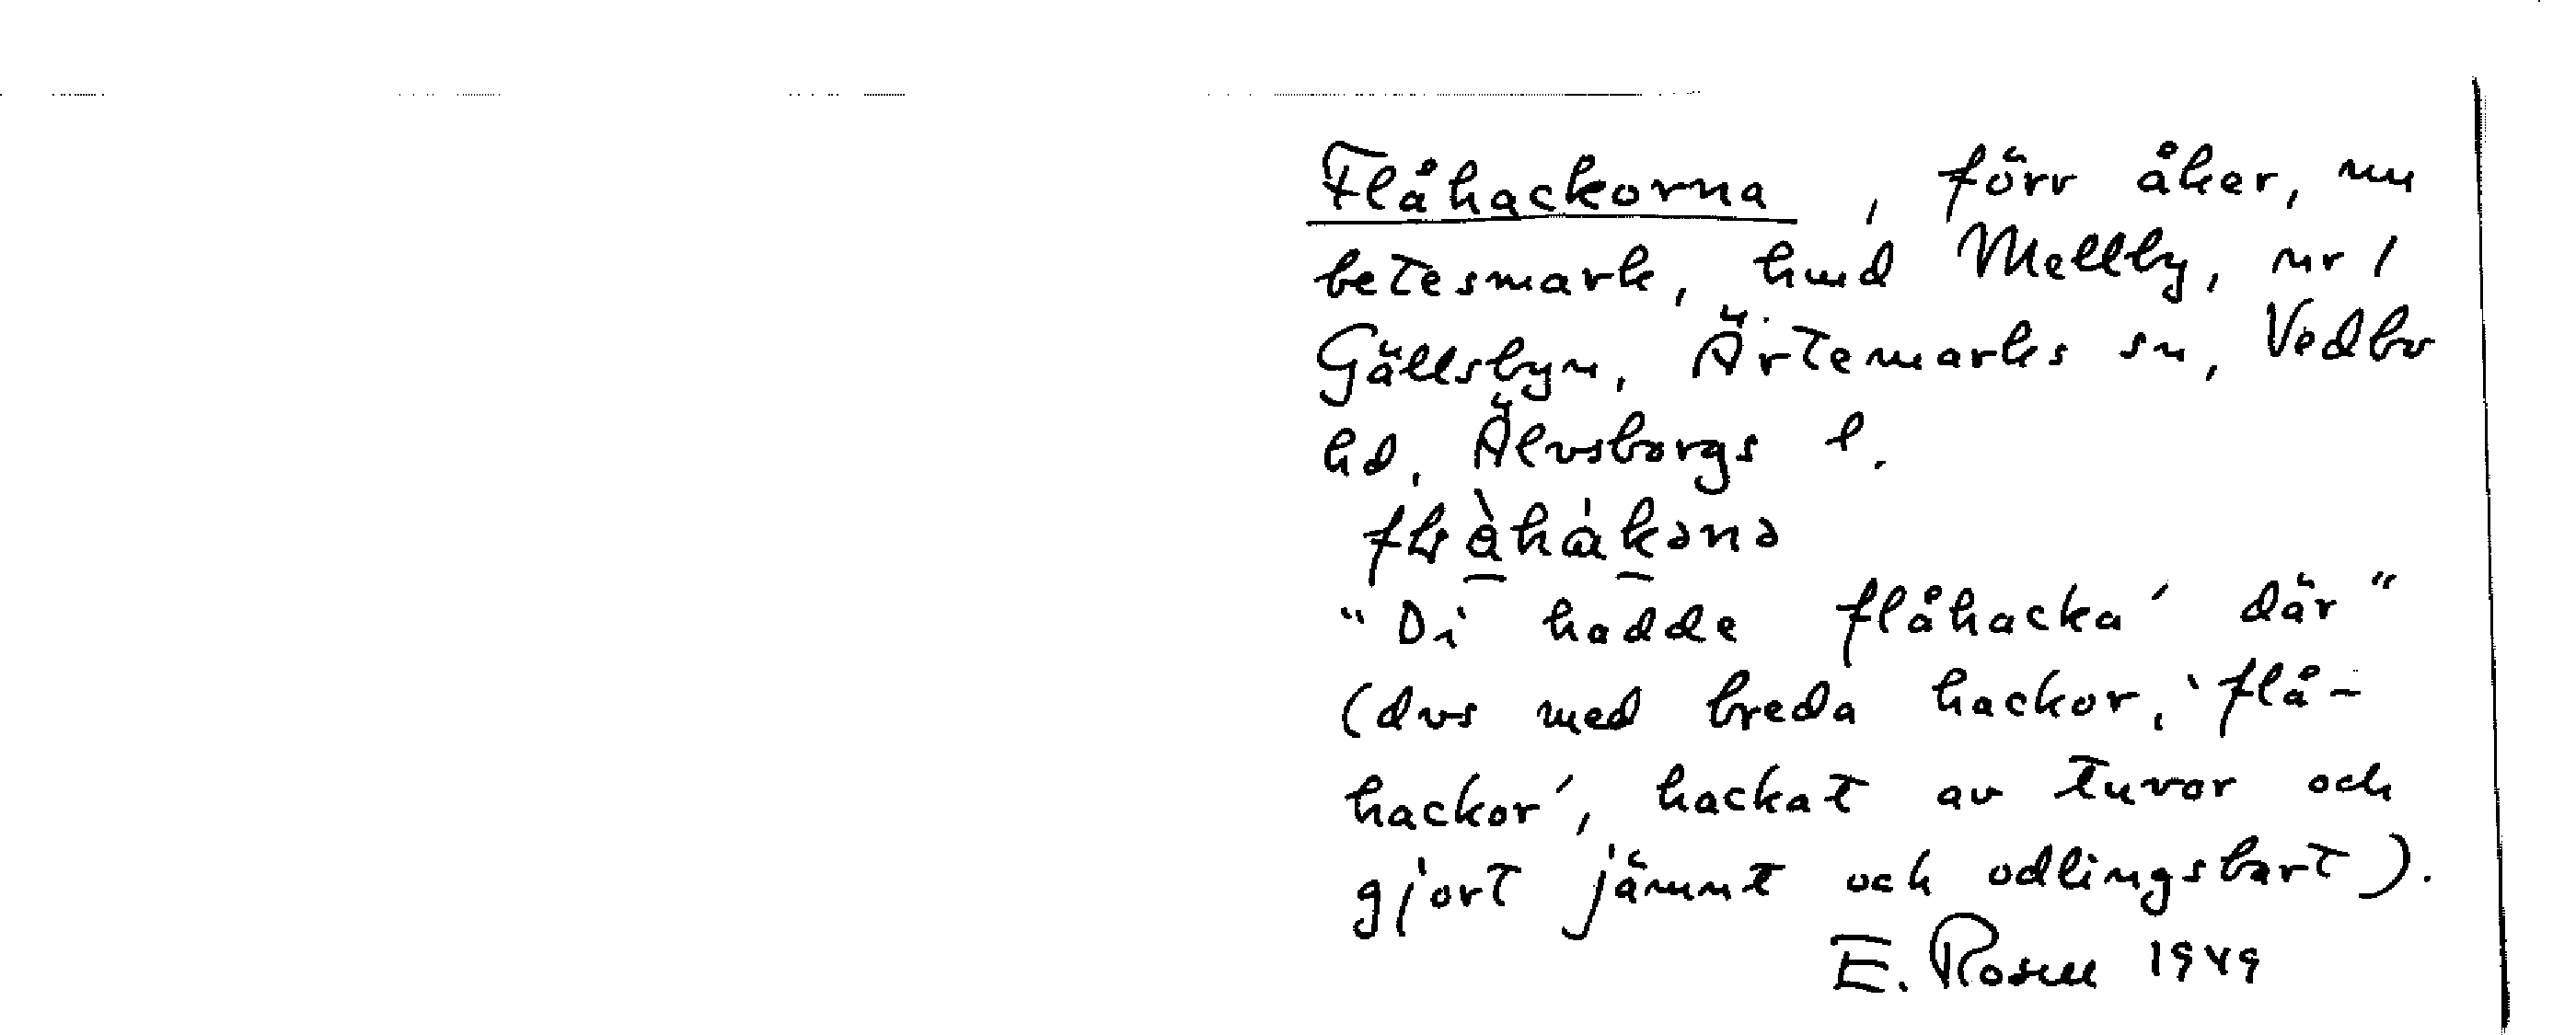 Flåhackorna, förr åker, nu
betesmark, hmd Mellby, nr 1
Gällsbyn, Ärtemarks sn, Vedbo
hd, Älvsborgs l.
"Di hadde flåhacka' där"
(dvs med breda hackor, 'flå-
hackor', hackat av tuvor och
gjort jämnt och odlingsbart).
E. Rosell 1949